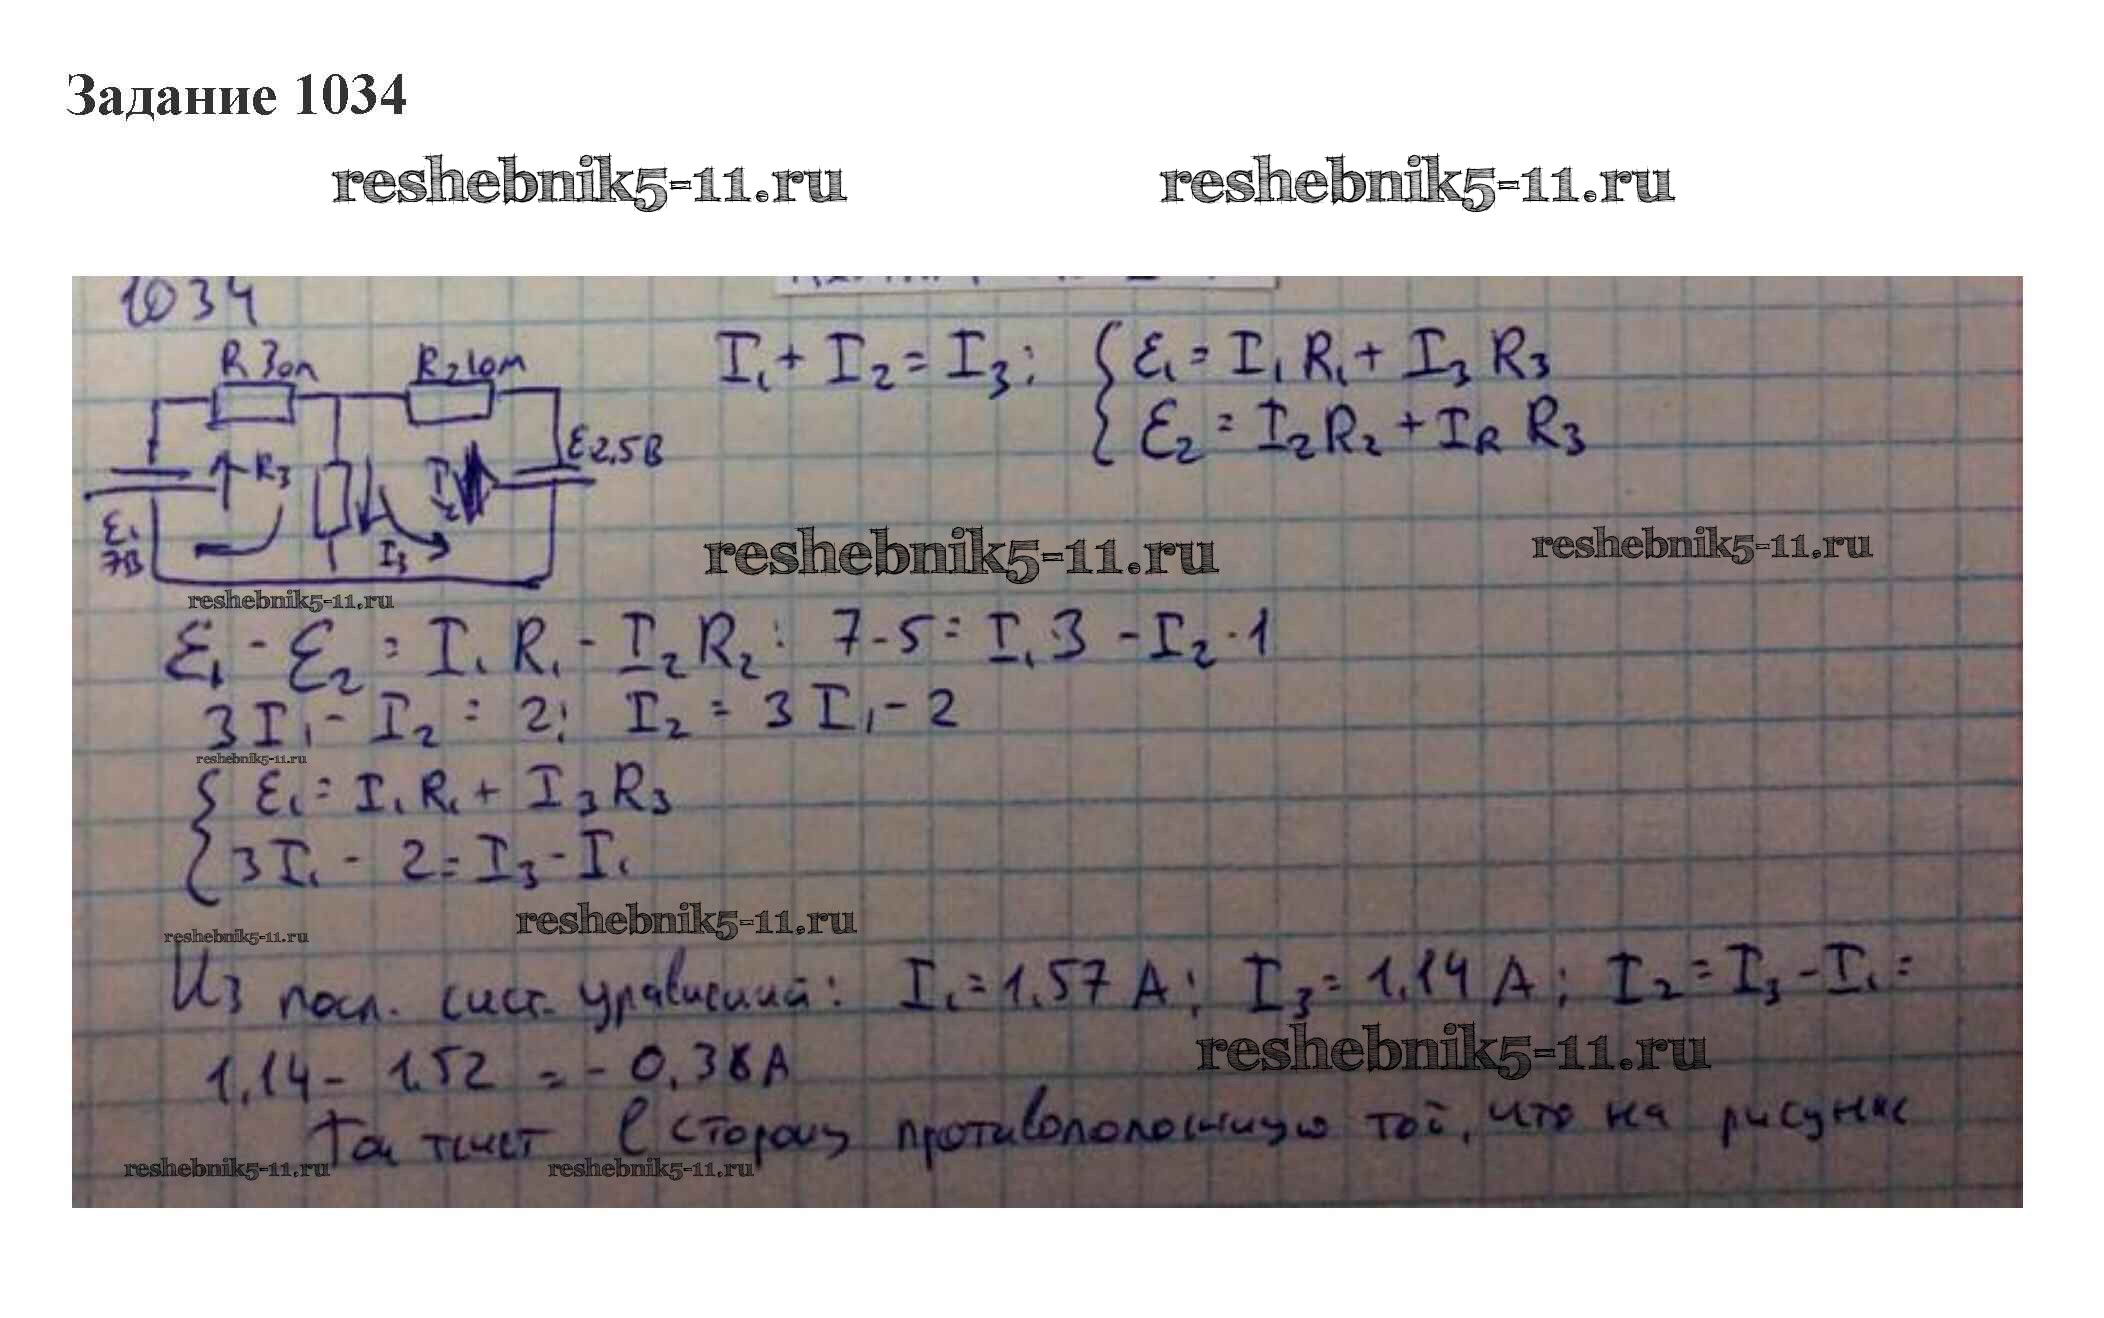 Задание 1034
reshebnik5-11.ru reshebnik5-11.ru
1034
R 3 Ом R₂ 1 Ом
I₁ + I₂ = I₃; { ε₁ = I₁ R₁ + I₃ R₃
ε₂ = I₂ R₂ + I_R R₃
ε 2,5 В
R₃
ε₁
7В
I₃
reshebnik5-11.ru reshebnik5-11.ru
reshebnik5-11.ru
ε₁ - ε₂ = I₁ R₁ - I₂ R₂: 7-5 = I₁ 3 - I₂ · 1
3 I₁ - I₂ = 2; I₂ = 3 I₁ - 2
reshebnik5-11.ru
{ ε₁ = I₁ R₁ + I₃ R₃
3 I₁ - 2 = I₃ - I₁
reshebnik5-11.ru
reshebnik5-11.ru
Из посл. сист. уравнений: I₁ = 1,57 А; I₃ = 1,14 А; I₂ = I₃ - I₁ =
reshebnik5-11.ru
1,14 - 1.52 = - 0,38 А
течет в сторону противоположную той, что на рисунке
reshebnik5-11.ru reshebnik5-11.ru